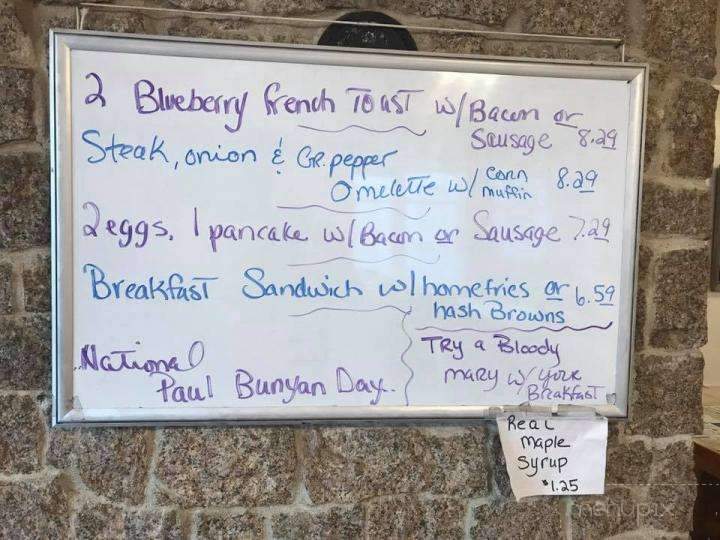 2 Blueberry French Toast w/Bacon or
Sausage 8.29
Steak, onion & GR. pepper
Omelette w/ corn
muffin 8.29
2 eggs, 1 pancake w/Bacon or Sausage 7.29
Breakfast Sandwich w/homefries or 6.59
hash Browns
National
Paul Bunyan Day..
TRY a Bloody
mary w/ your
Breakfast
Real
maple
syrup
$1.25
menupix